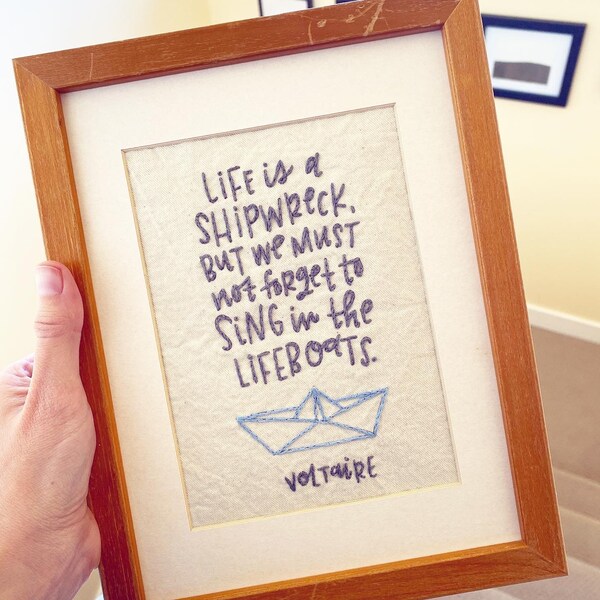 LiFE is a
SHiPWReCK,
BUT We MUST
not forget to
SiNG in the
LiFEBOaTS.
VOLTaiRE